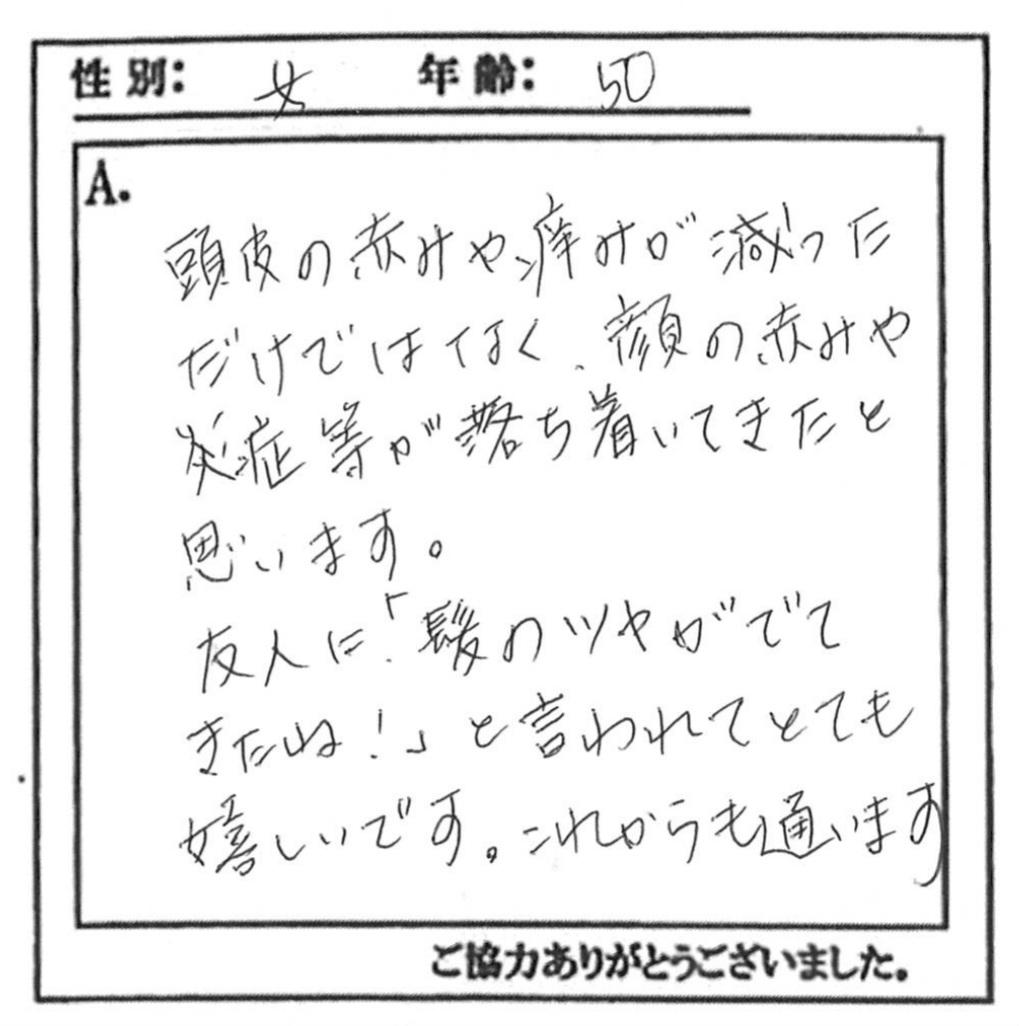 性別： 女 年齢： 50
A.
頭皮の赤みや痒みが減った
だけではなく、顔の赤みや
炎症等が落ち着いてきたと
思います。
友人に「髪のツヤがでて
きたね！」と言われてとても
嬉しいです。これからも通います
ご協力ありがとうございました。